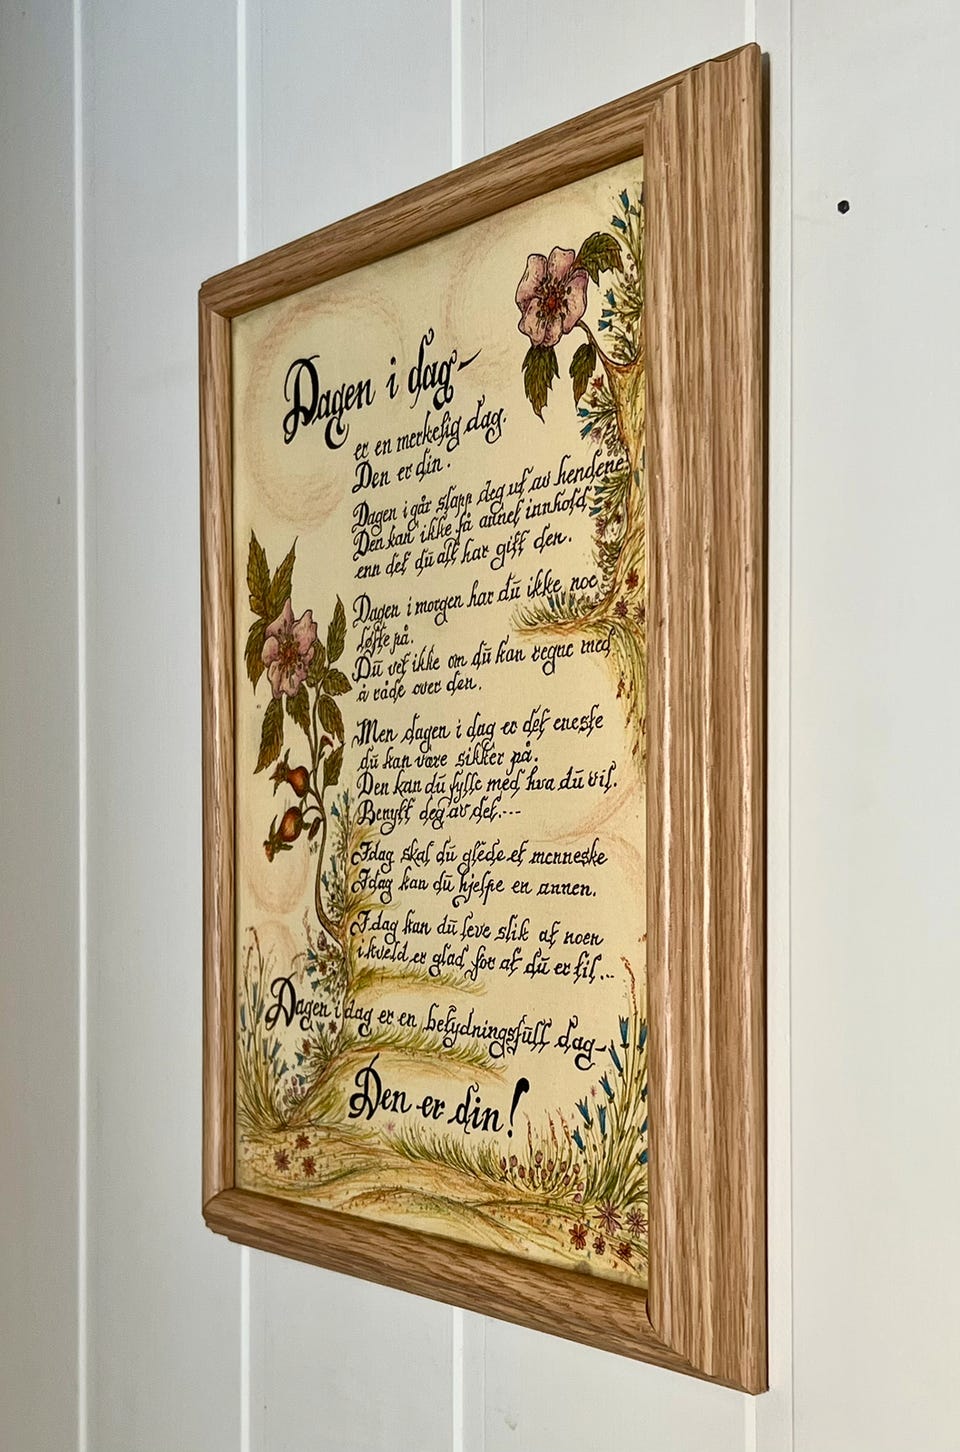 Dagen i dag-
er en merkelig dag.
Den er din.
Dagen i går slapp deg ut av hendene.
Den kan ikke få annet innhold
enn det du alt har gitt den.
Dagen i morgen har du ikke noe
løfte på.
Du vet ikke om du kan regne med
å råde over den.
Men dagen i dag er det eneste
du kan være sikker på.
Den kan du fylle med hva du vil.
Benytt deg av det.---
Idag skal du glede et menneske
Idag kan du hjelpe en annen.
I dag kan du leve slik at noen
i kveld er glad for at du er til...
Dagen i dag er en betydningsfull dag-
Den er din!